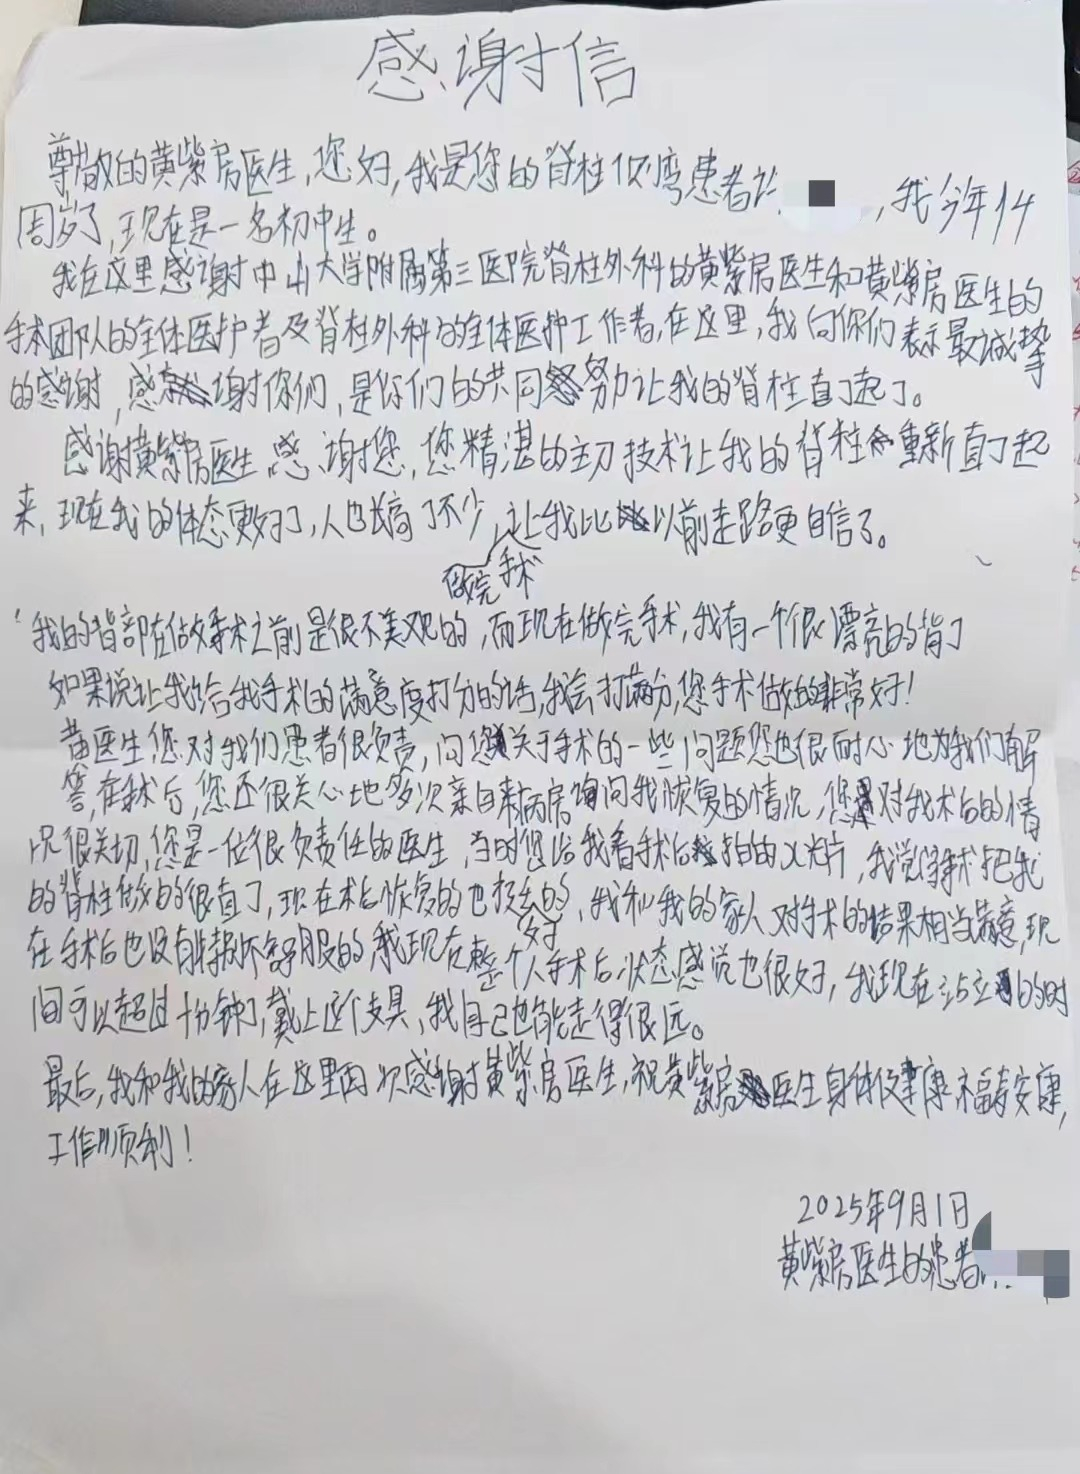 感谢信
尊敬的黄紫房医生,您好,我是您的脊柱侧弯患者,我今年14
周岁了,现在是一名初中生。
我在这里感谢中山大学附属第三医院脊柱外科的黄紫房医生和黄紫房医生的
手术团队的全体医护者及脊柱外科的全体医护工作者,在这里,我向你们表示最诚挚
的感谢,感谢你们,是你们的共同努力让我的脊柱直了起了。
感谢黄紫房医生,感谢您,您精湛的主刀技术让我的脊柱重新直了起
来,现在我的体态更好了,人也长高了不少,做完手术让我比以前走路更自信了。
我的背部在做手术之前是很不美观的,而现在做完手术,我有一个很漂亮的背了
如果说让我给我手术的满意度打分的话,我会打满分,您手术做的非常好!
黄医生您对我们患者很负责,问您关于手术的一些问题您也很耐心地为我们解
答,在术后,您还很关心地多次亲自来病房询问我恢复的情况,您对我术后的情
况很关切,您是一位很负责任的医生,当时您给我看手术后拍的X光片,我觉得手术把我
的脊柱做的很直了,现在术后恢复的也挺好的,我和我的家人对手术的结果相当满意,现
在手术后也没有特别不舒服的,我现在整个人手术后状态感觉也很好,我现在站立的时
间可以超过十分钟了,戴上这个支具,我自己也能走得很远。
最后,我和我的家人在这里再次感谢黄紫房医生,祝黄紫房医生身体健康,福寿安康,
工作顺利!
2025年9月1日
黄紫房医生的患者